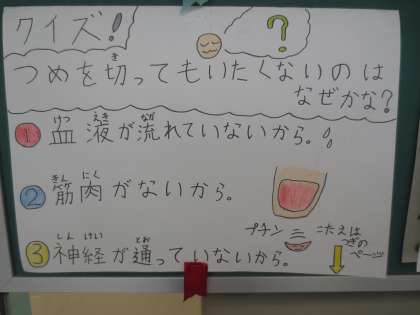 クイズ!
?
つめを切ってもいたくないのは
なぜかな?
① 血液が流れていないから。
② 筋肉がないから。
③ 神経が通っていないから。
プチン
こたえは
つぎの
ページ